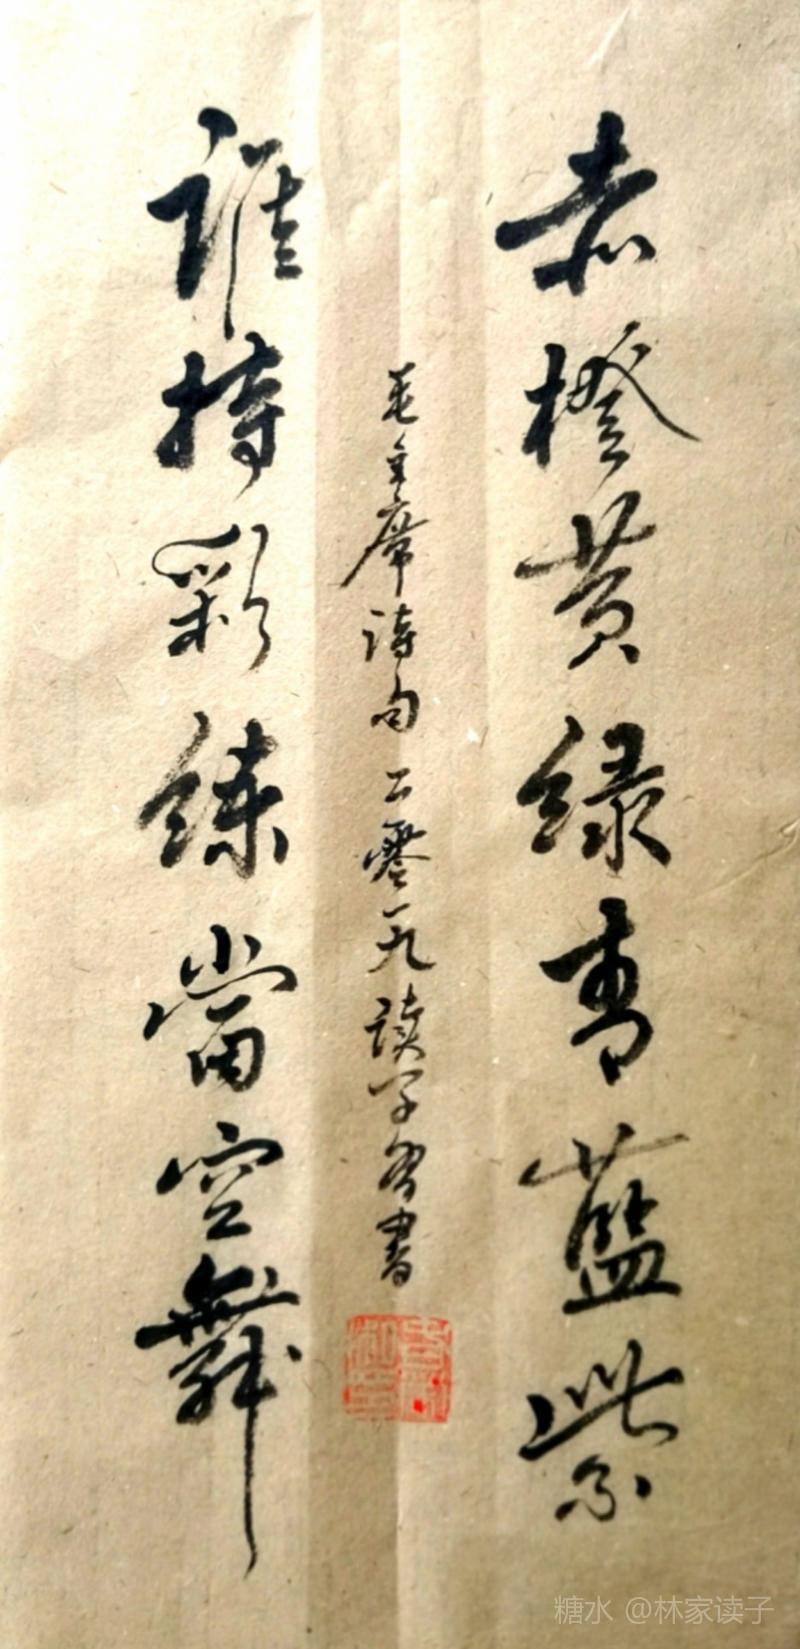 赤橙黄绿青藍紫
誰持彩練當空舞
毛主席诗句二零一九读子学書
糖水 @林家读子